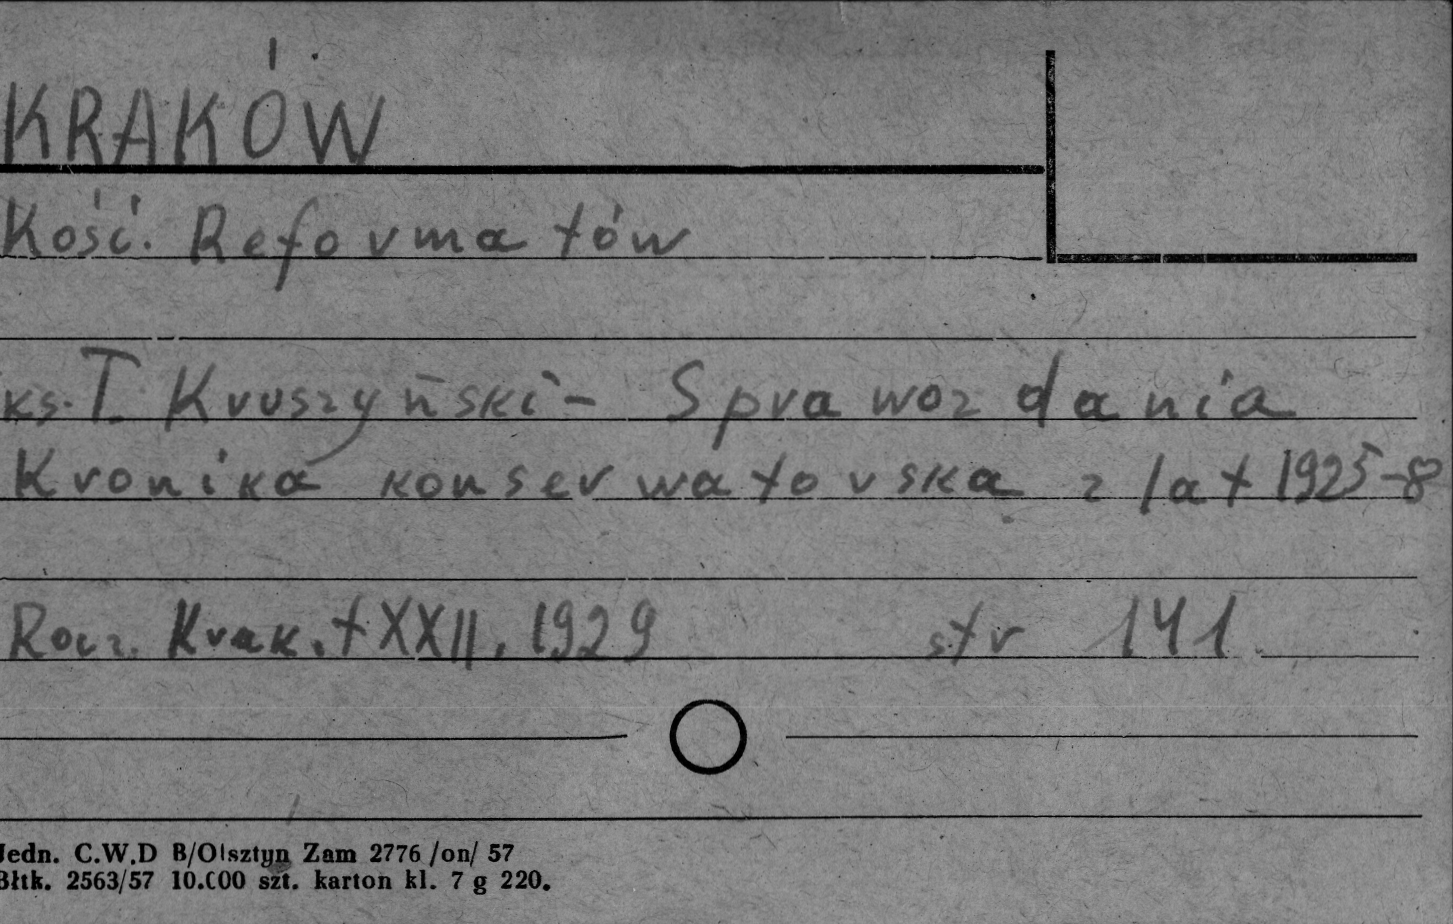 KRAKÓW
Kość. Reformatów
ks. T. Kruszyński - Sprawozdania
Kronika konserwatorska z lat 1925-8
Rocz. Krak. t XXII, 1929 str 141
Jedn. C.W.D B/Olsztyn Zam 2776 /on/ 57
Błtk. 2563/57 10.000 szt. karton kl. 7 g 220.